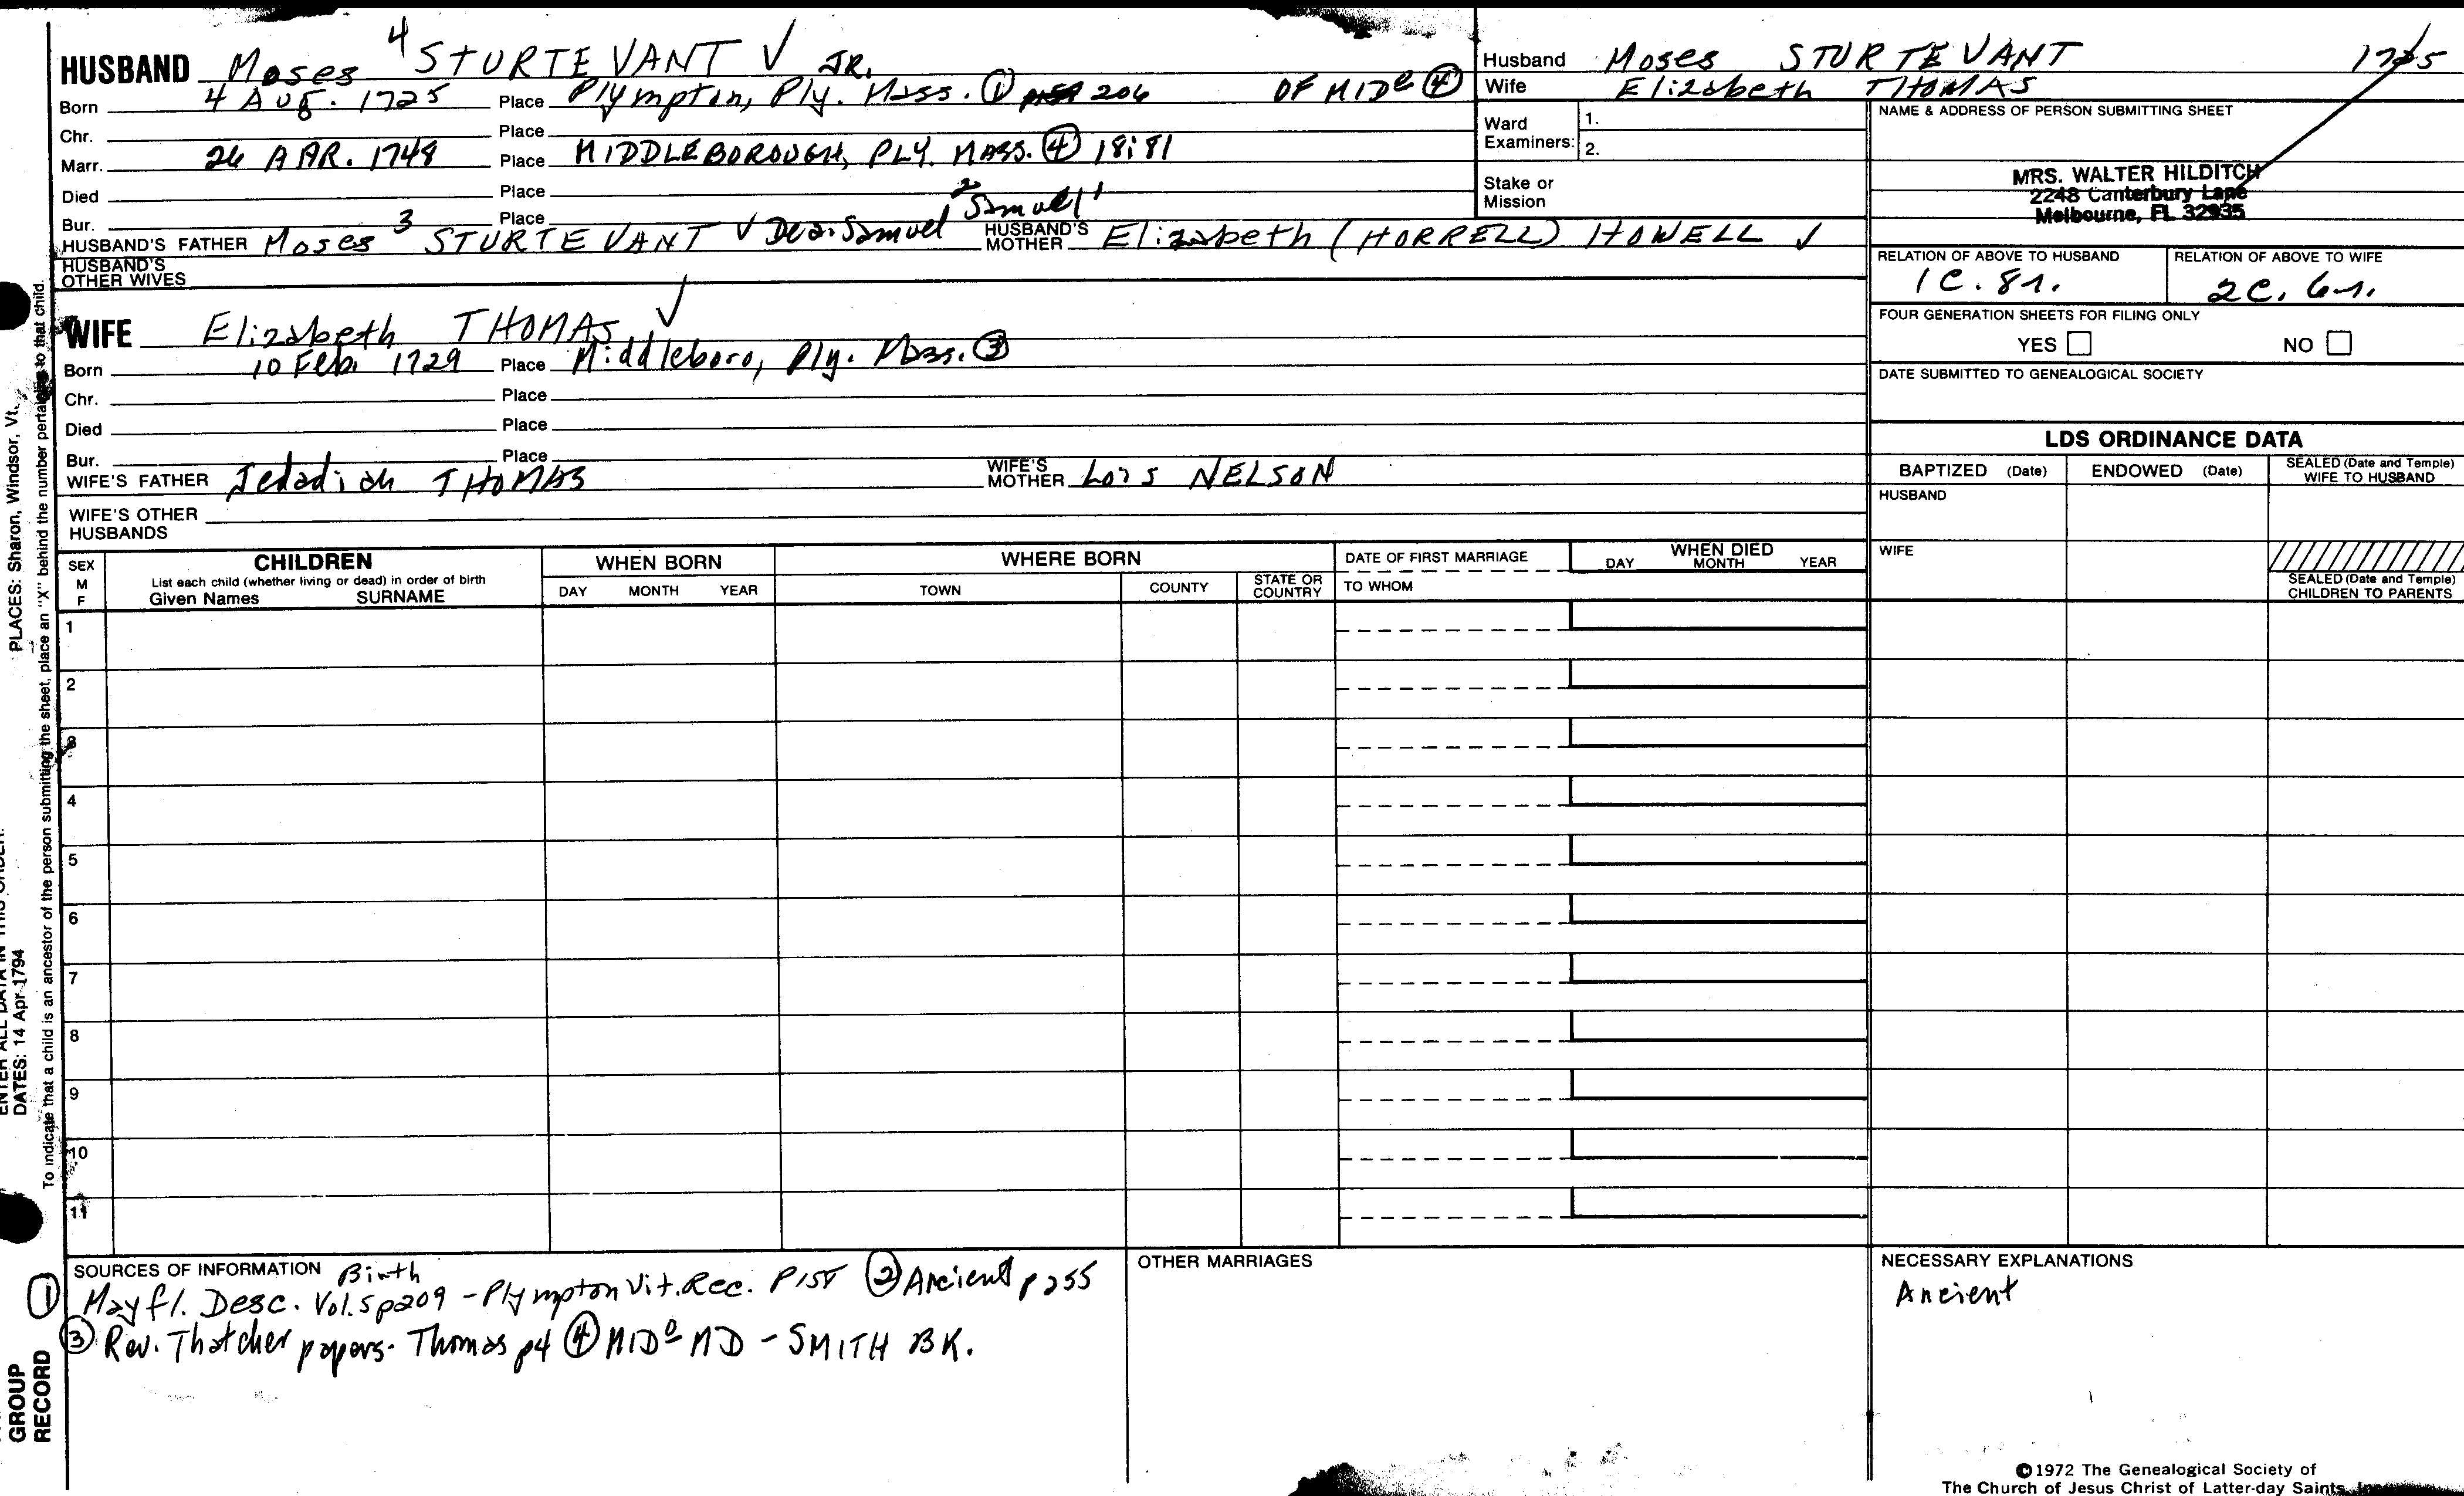 HUSBAND Moses 4 STURTEVANT √ JR.
Born 4 AUG. 1725 Place Plympton, Ply. Mass. ① 206 OF MIDº ④
Chr. Place
Marr. 26 APR. 1748 Place MIDDLEBOROUGH, PLY. MASS. ④ 18:81
Died Place
Bur. Place
HUSBAND'S FATHER Moses 3 STURTEVANT √ Dea. Samuel 2 Samuel 1 HUSBAND'S MOTHER Elizabeth (HORRELL) HOWELL √
HUSBAND'S OTHER WIVES
WIFE Elizabeth THOMAS √
Born 10 Feb. 1729 Place Middleboro, Ply. Mass. ③
Chr. Place
Died Place
Bur. Place
WIFE'S FATHER Jedadiah THOMAS WIFE'S MOTHER Lois NELSON
WIFE'S OTHER HUSBANDS
Husband Moses STURTEVANT 1725
Wife Elizabeth THOMAS
Ward Examiners: 1.
2.
Stake or Mission
NAME & ADDRESS OF PERSON SUBMITTING SHEET
MRS. WALTER HILDITCH
2248 Canterbury Lane
Melbourne, FL 32935
RELATION OF ABOVE TO HUSBAND RELATION OF ABOVE TO WIFE
1C. 8r. 2C. 6r.
FOUR GENERATION SHEETS FOR FILING ONLY
YES NO
DATE SUBMITTED TO GENEALOGICAL SOCIETY
LDS ORDINANCE DATA
BAPTIZED (Date) ENDOWED (Date) SEALED (Date and Temple) WIFE TO HUSBAND
HUSBAND
WIFE
SEALED (Date and Temple) CHILDREN TO PARENTS
SEX M F
CHILDREN
List each child (whether living or dead) in order of birth
Given Names SURNAME
WHEN BORN
DAY MONTH YEAR
WHERE BORN
TOWN COUNTY STATE OR COUNTRY
DATE OF FIRST MARRIAGE
TO WHOM
WHEN DIED
DAY MONTH YEAR
1
2
3
4
5
6
7
8
9
10
11
SOURCES OF INFORMATION Birth
① Mayfl. Desc. Vol. 5 p209 - Plympton Vit. Rec. P 157 ② Ancient p 255
③ Rev. Thatcher papers - Thomas p4 ④ MIDº MD - SMITH BK.
OTHER MARRIAGES
NECESSARY EXPLANATIONS
Ancient
©1972 The Genealogical Society of
The Church of Jesus Christ of Latter-day Saints
PLACES: Sharon, Windsor, Vt.
To indicate that a child is an ancestor of the person submitting the sheet, place an "X" behind the number pertaining to that child.
ENTER ALL DATA IN THIS ORDER:
DATES: 14 Apr 1794
GROUP
RECORD